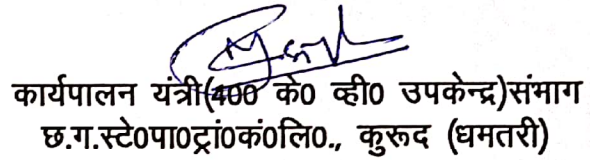 कार्यपालन यंत्री(400 के० व्ही० उपकेन्द्र)संभाग
छ.ग.स्टे०पा०ट्रां०कं०लि०., कुरूद (धमतरी)